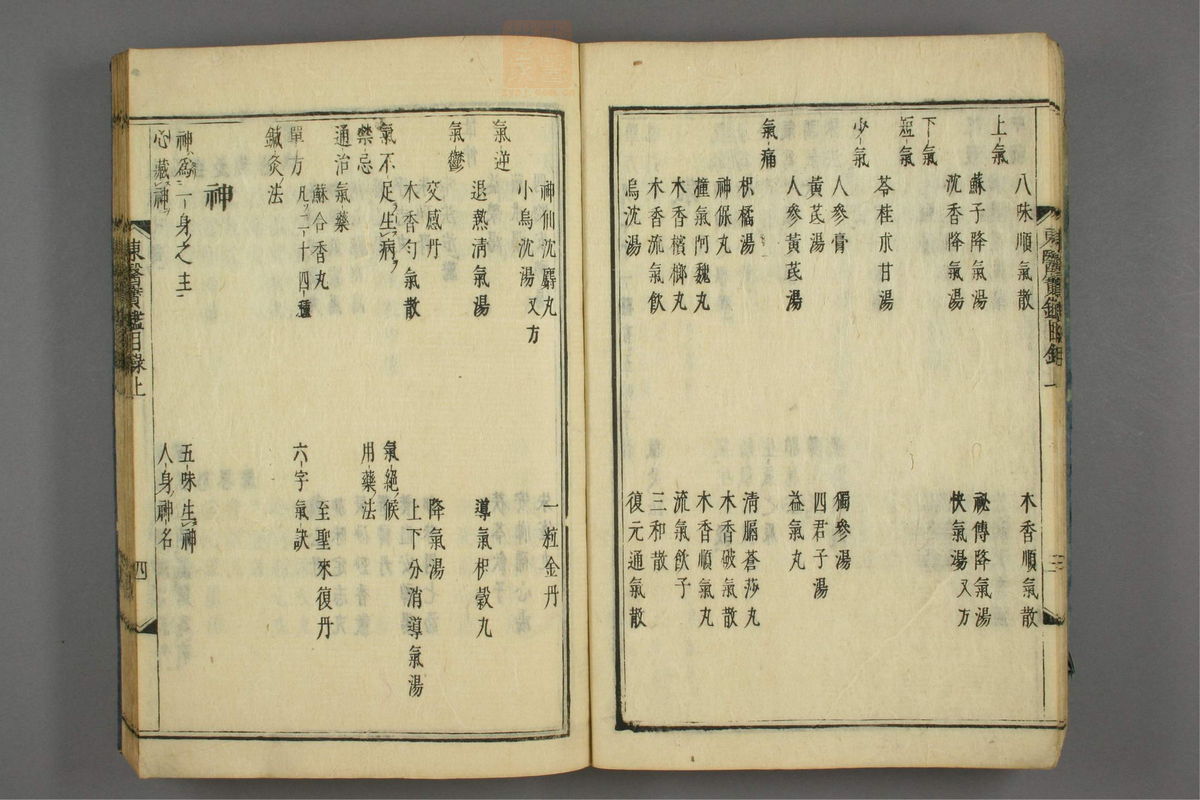 上氣
八味順氣散 木香順氣散
蘇子降氣湯 祕傳降氣湯
沈香降氣湯 快氣湯又方
下氣
短氣
苓桂朮甘湯
少氣
人參膏 獨參湯
黃芪湯 四君子湯
人參黃芪湯 益氣丸
氣痛
枳橘湯 清膈蒼莎丸
神保丸 木香破氣散
撞氣阿魏丸 木香順氣丸
木香檳榔丸 流氣飲子
木香流氣飲 三和散
烏沈湯 復元通氣散
東醫寶鑑目錄上
三
神仙沈麝丸 一粒金丹
小烏沈湯又方
氣逆
退熱清氣湯 導氣枳殼丸
氣鬱
交感丹 降氣湯
木香勻氣散 上下分消導氣湯
氣不足生病 氣絕候
禁忌 用藥法
通治氣藥
蘇合香丸 至聖來復丹
單方 凡二十四種 六字氣訣
鍼灸法
神
神爲一身之主 五味生神
心藏神 人身神名
東醫寶鑑目錄上
四